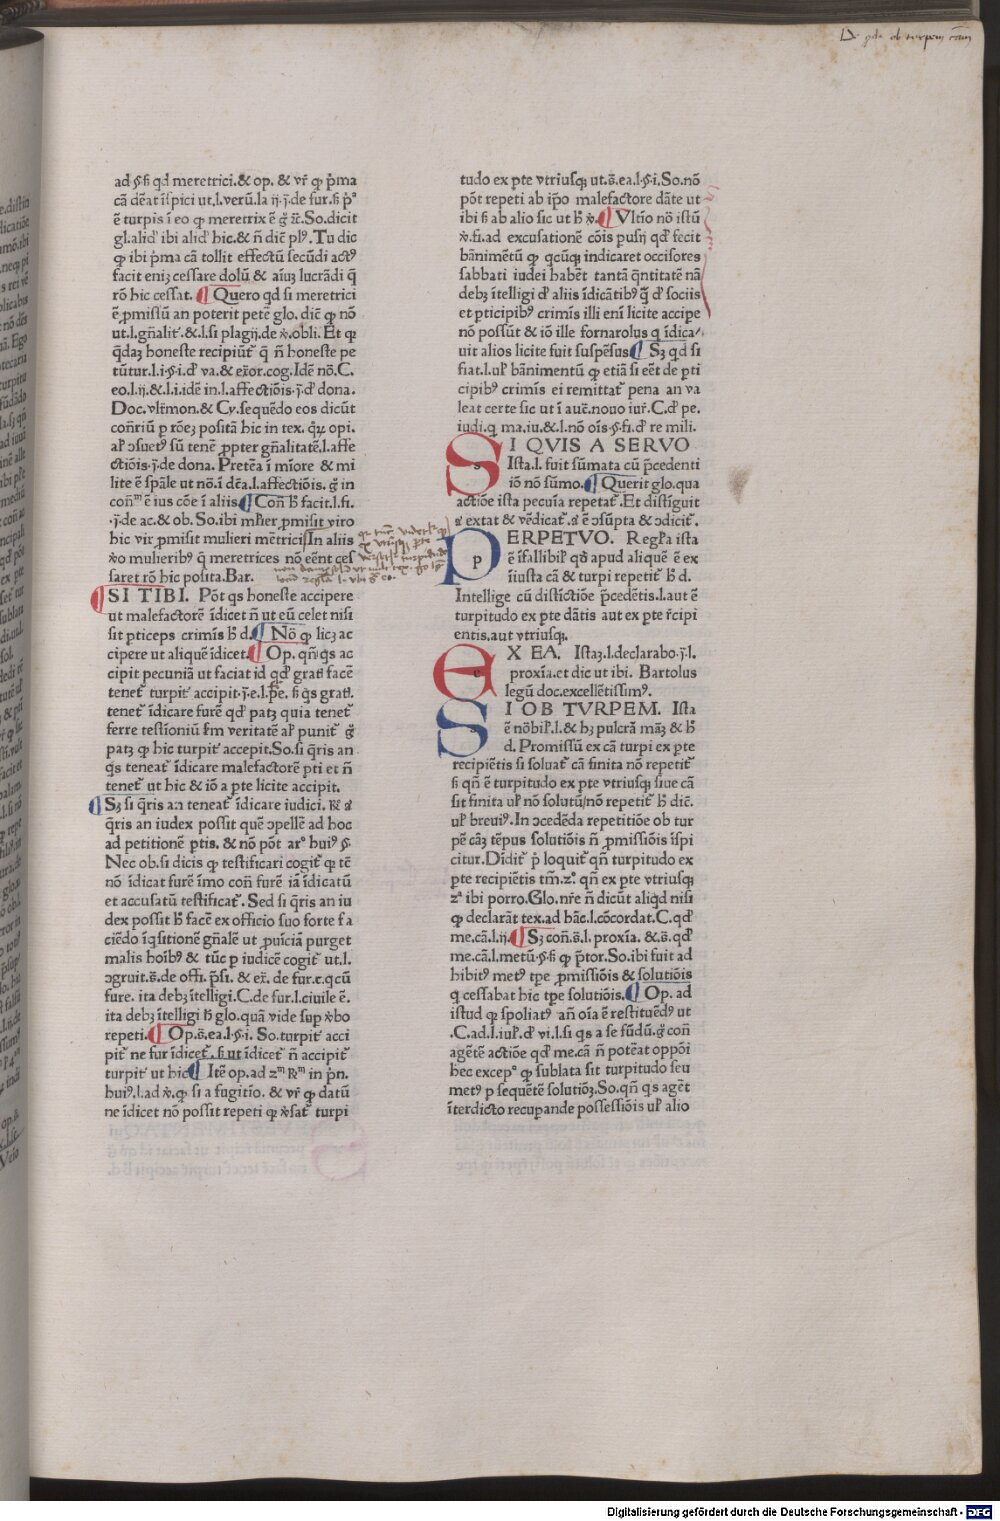 ad §.fi qd meretrici.& op. & vr̃ ꝙ p̃ma
cā dēat īspici ut.l.verū.la ij.j̄.de fur.fi p̄ᵃ
ē turpis ī eo ꝙ meretrix ē g̃ ⁊c̄.So.dicit
gl.alid' ibi alid' hic.& n̄ dic̄ plꝰ.Tu dic
ꝙ ibi p̃ma cā tollit effectū secūdi actꝰ
facit eniʒ cessare dolū & aīuʒ lucrādi q̄
rō hic cessat. ¶ Quero qd si meretrici
ē ꝓmissū an poterit petē glo. dic̄ ꝙ nō
ut.l.gn̄alit̄.&.l.si plagij.de v̄.obli. Et ꝙ
q̄daʒ honeste recipiūt̄ q̄ n̄ honeste pe
tūtur.l.i.§.i.d' va.& ex̄or.cog.Idē nō.C.
eo.l.ij.& l.i.idē in.l.affectiōis.j̄.d' dona.
Doc.vlr̄mon.& Cy.sequēdo eos dicūt
con̄riū p rōeʒ positā hic in tex. qʒ opi.
al' ɔsuetꝰ sū tenē ꝓpter gn̄alitatē.l.affe
ctiōis.j̄.de dona. Pretēa ī mīore & mi
lite ē sp̄ale ut nō.ī dēa.l.affectiōis. g̃ in
con̄ᵐ ē ius cōe ī aliis ¶ Con̄ h̄ facit.l.fi.
.j̄.de ac.& ob. So.ibi ml'ier ꝓmisit viro
hic vir ꝓmisit mulieri mēretrici In aliis
v̄o mulieribꝰ q̄ meretrices nō eēnt ces
saret rō hic posita.Bar.
¶ SI TIBI. Pōt qs honeste accipere
ut malefactorē īdicet n̄ ut eū celet nisi
sit ꝑticeps crimīs h̄ d. ¶ Nō ꝙ licʒ ac
cipere ut aliquē īdicet. ¶ Op. qn̄ qs ac
cipit pecuniā ut faciat id qd' gratꝭ facē
tenet̄ turpit̄ accipit.j̄.e.l.pe. fi qs gratꝭ.
tenet̄ īdicare furē qd' patʒ quia tenet̄
ferre testioniū sm veritatē al' punit̄ g̃
patʒ ꝙ hic turpit̄ accepit.So.si q̄ris an
qs teneat̄ īdicare malefactorē pti et n̄
tenet̄ ut hic & iō a pte licite accipit.
¶ Sʒ si q̄ris an teneat̄ īdicare iudici.
q̄ris an iudex possit quē ɔpellē ad hoc
ad petitionē ptis. & nō pōt arᵒ huiꝰ §.
Nec ob.si dicis ꝙ testificari cogit̄ ꝙ tē
nō īdicat furē īmo con̄ furē iā īdicatū
et accusatū testificat̄. Sed si q̄ris an iu
dex possit h̄ facē ex officio suo forte fa
ciēdo īqsitionē gn̄alē ut ꝓuīciā purget
malis hoībꝰ & tūc p iudicē cogit̄ ut.l.
ɔgruit.s̄.de offi. p̄si. & ex̄. de fur.c.qcū
fure. ita debʒ ītelligi.C.de fur.l.ciuile ē.
ita debʒ ītelligi h̄ glo.quā vide sup v̄bo
repeti. ¶ Op.s̄.ea.l.§.i. So.turpit̄ acci
pit̄ ne fur īdicet̄.fi ut īdicet̄ n̄ accipit̄
turpit̄ ut hic ¶ Itē op.ad
huiꝰ.l.ad v̄.ꝙ si a fugitīo. & vr̄ ꝙ datū
ne īdicet nō possit repeti ꝙ v̄sat̄ turpi
tudo ex pte vtriusqʒ ut.s̄.ea.l.§.i.So.nō
pōt repeti ab ip̄o malefactore dāte ut
ibi fi ab alio sic ut h̄ v̄. ¶ Vltīo nō istū
v̄.fi.ad excusationē cōis pusij qd' fecit
bānimētū ꝙ qcūqʒ indicaret occisores
sabbati iudei habēt tantā q̄ntitatē nā
debʒ ītelligi d' aliis īdicātibꝰ q̄ d' sociis
et pticipibꝰ crimīs illi enī licite accipe
nō possūt & iō ille fornarolus q īdica-
uit alios licite fuit suspēsus ¶ Sʒ qd si
fiat.l.ul' bānimentū ꝙ etiā si eēt de pti
cipibꝰ crimīs ei remittat̄ pena an va
leat certe sic ut ī aut̄.nouo iur̄.C.d' pe.
iudi.q ma.iu.& l.nō oīs.§.fi.d' re mili.
SI QVIS A SERVO
Ista.l. fuit sūmata cū p̄cedenti
iō nō sūmo. ¶ Querit glo.qua
actiōe ista pecūia repetat̄. Et distīguit
extat & vēdicat̄. ē ɔsūpta & ɔdicit̄.
PERPETVO. Regl'a ista
ē īfallibil' qd apud aliquē ē ex
iiusta cā & turpi repetit̄ h̄ d.
Intellige cū distīctiōe p̄cedētis.l.aut ē
turpitudo ex pte dātis aut ex pte r̄cipi
entis.aut vtriusqʒ.
EX EA. Istaʒ.l.declarabo.j̄.l.
proxīa.et dic ut ibi. Bartolus
legū doc.excellētissimꝰ.
SI OB TVRPEM. Ista
ē nōbil'.l.& hʒ pulcrā māʒ & h̄
d. Promissū ex cā turpi ex pte
recipiētis si soluat̄ cā finita nō repetit̄
fi qn̄ ē turpitudo ex pte vtriusqʒ siue cā
sit finita ul' nō solutū/nō repetit̄ h̄ dic̄.
ul' breuiꝰ. In ɔcedēda repetitiōe ob tur
pē cāʒ tēpus solutiōis n̄ ꝓmissiōis īspi
citur. Dīdit̄ p̄ loquit̄ qn̄ turpitudo ex
pte recipiētis tm̄.zᵒ qn̄ ex pte vtriusqʒ
zᵃ ibi porro.Glo.nr̄e n̄ dicūt aliqd nisi
ꝙ declarāt tex.ad hāc.l.cōcordat.C.qd'
me.cā.l.ij. ¶ Sʒ con̄.s̄.l. proxīa. &.s̄.qd'
me.cā.l.metū.§.fi ꝙ p̄tor.So.ibi fuit ad
hibitꝰ metꝰ tpe ꝓmissiōis & solutiōis
q cessabat hic tpe solutiōis. ¶ Op. ad
istud ꝙ spoliatꝰ an̄ oīa ē restituēdꝰ ut
.C.ad.l.iul'.d' vi.l.si qs a se fūdū.g̃ con̄
agētē actiōe qd' me.cā n̄ potēat oppōi
hec excepᵒ ꝙ sublata sit turpitudo seu
metꝰ p sequētē solutiōʒ.So.qn̄ qs ag̃et
īterdicto recuperande possessiōis ul' alio
Digitalisierung gefördert durch die Deutsche Forschungsgemeinschaft - DFG